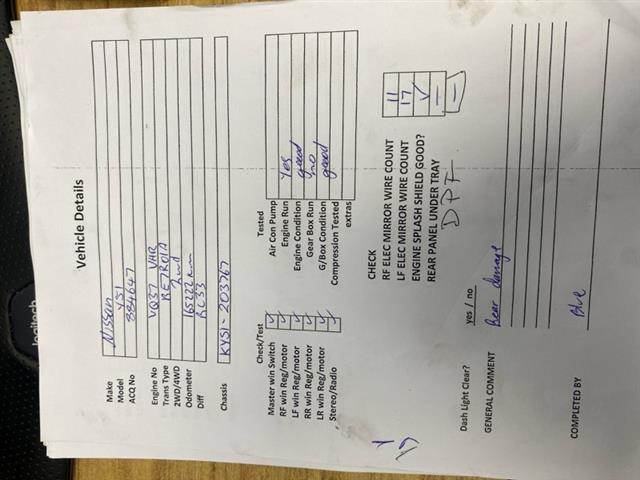 Vehicle Details
Make Nissan
Model Y51
ACQ No 884647
Engine No VQ37 VHR
Trans Type RE7R01A
2WD/4WD 2wd
Odometer 165222 km
Diff RC33
Chassis KY51-203267
Check/Test
Master win Switch
RF win Reg/motor
LF win Reg/motor
RR win Reg/motor
LR win Reg/motor
Stereo/Radio
Tested
Air Con Pump
Engine Run Yes
Engine Condition good
Gear Box Run no
G/Box Condition good
Compression Tested
extras
CHECK
RF ELEC MIRROR WIRE COUNT 11
LF ELEC MIRROR WIRE COUNT 17
ENGINE SPLASH SHIELD GOOD? ✓
REAR PANEL UNDER TRAY —
DPF —
Dash Light Clear? yes / no
GENERAL COMMENT Rear damage
COMPLETED BY
logitech